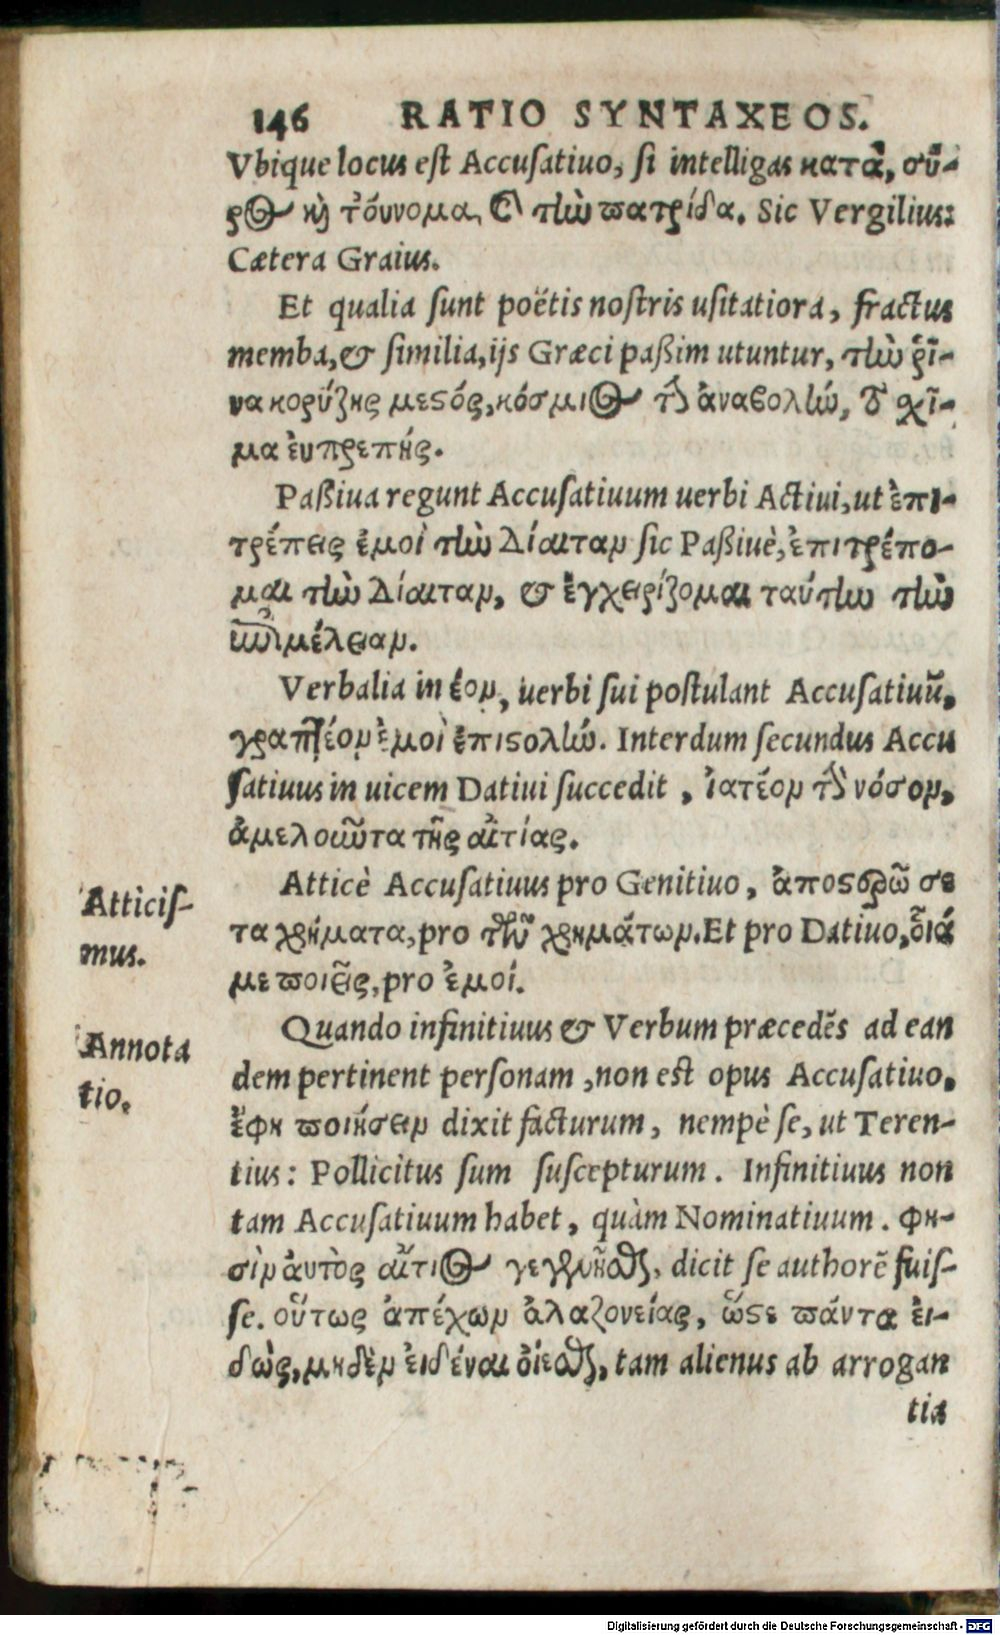 146 RATIO SYNTAXEOS.
Vbique locus est Accusatiuo, si intelligas κατὰ, σύ-
ρος κὴ τὄυνομα, & τὴν πατρίδα. Sic Vergilius:
Cætera Graius.
Et qualia sunt poëtis nostris usitatiora, fractus
memba, & similia, ijs Græci paßim utuntur, τὴν ῥῖ-
να κορύζης μεϛός, κόσμιος τὴν ἀναβολὴν, τὸ χῖ-
μα ἐυπρεπής.
Paßiua regunt Accusatiuum uerbi Actiui, ut ἐπι-
τρέπεις ἐμοὶ τὴν δίαιταν sic Paßiuè, ἐπιτρέπο-
μαι τὴν δίαιταν, & ἐγχειρίζομαι ταύτην τὴν
ἐπιμέλειαν.
Verbalia in έον, uerbi sui postulant Accusatiuũ,
γραπτέον ἐμοὶ ἐπιϛολήν. Interdum secundus Accu
satiuus in uicem Datiui succedit, ἰατέον τὴν νόσον,
ἀμελοῦντα τῆς αἰτίας.
Atticis-
mus.
Atticè Accusatiuus pro Genitiuo, ἀποϛερῶ σε
τα χρήματα, pro τῶν χρημάτων. Et pro Datiuo, οἷά
με ποιεῖς, pro ἐμοί.
Annota
tio.
Quando infinitiuus & Verbum præcedẽs ad ean
dem pertinent personam, non est opus Accusatiuo.
ἔφη ποιήσειν dixit facturum, nempè se, ut Teren-
tius: Pollicitus sum suscepturum. Infinitiuus non
tam Accusatiuum habet, quàm Nominatiuum. φη-
σὶν ἀυτὸς αἴτιος γεγενῆσθαι, dicit se authorẽ fuis-
se. οὕτως ἀπέχων ἀλαζονείας, ὥϛε πάντα ἐι-
δὼς, μηδὲν ἐιδέναι ὄιεσθαι, tam alienus ab arrogan
tia
Digitalisierung gefördert durch die Deutsche Forschungsgemeinschaft - DFG